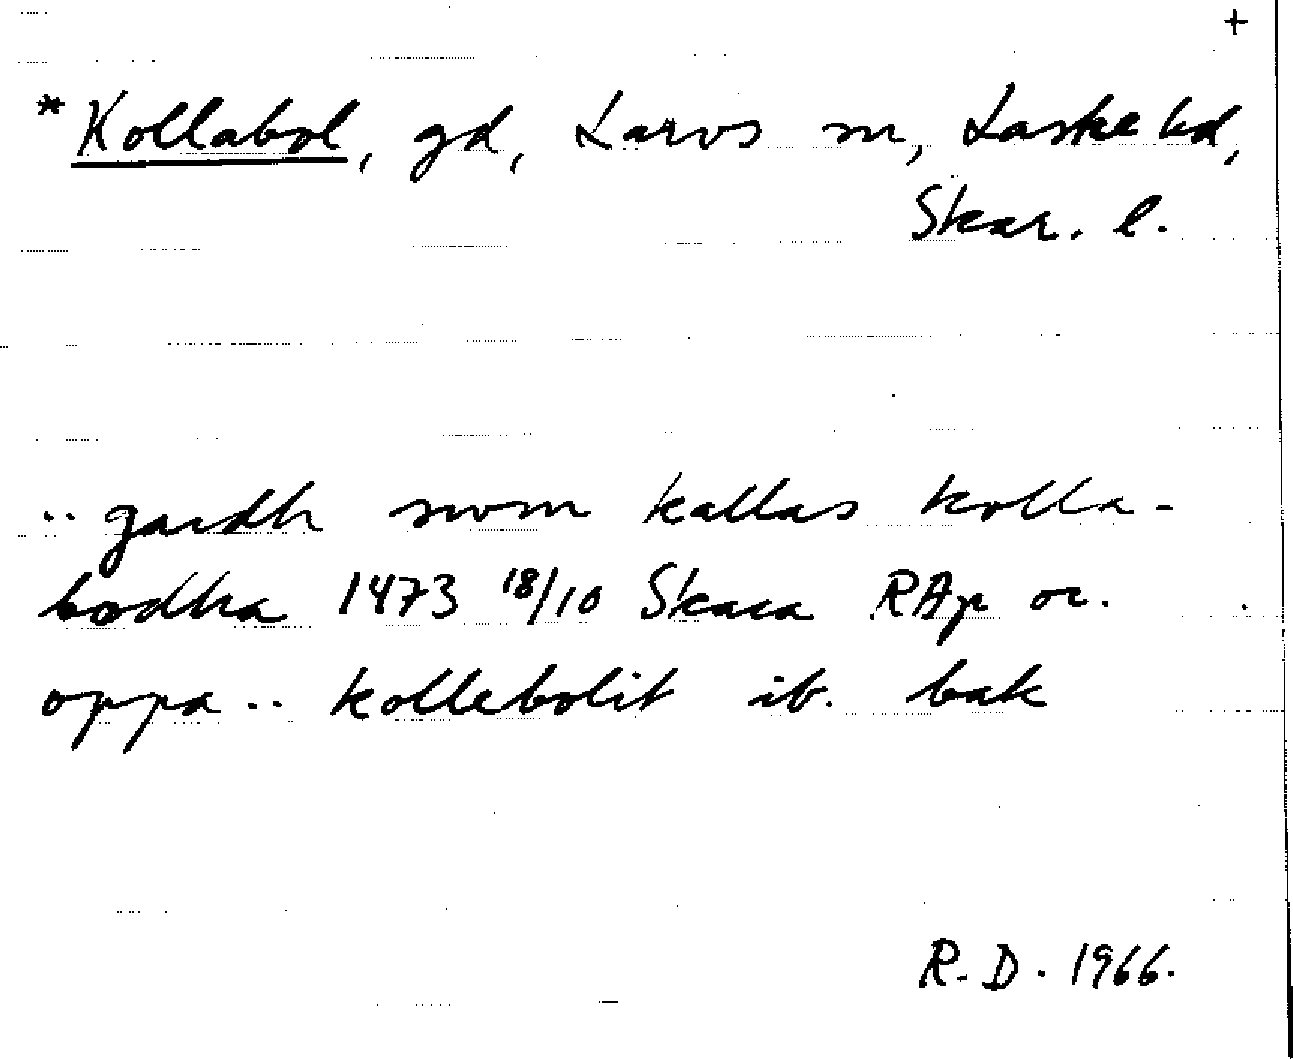 +
*Kollabol, gd, Larvs sn, Laske hd,
Skar. l.
.. gardh som kallas kolla-
bodha 1473 18/10 Skara RAp or.
oppa .. kollebolit ib. bak
R. D. 1966.